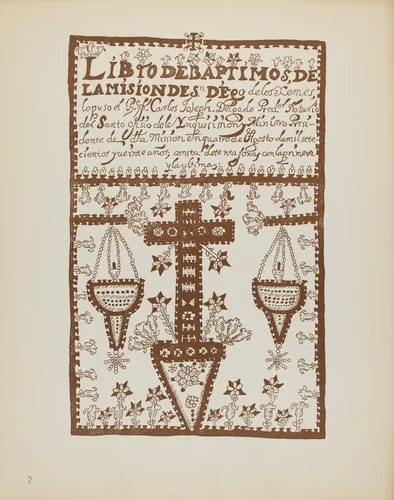 LIbro DE BAPTIMOS, DE
LA MISION DE Sn. DEGo de los Xemes,
lo puso el P. Fr. Carlos Joseph Delgado Pred.or Notario
del Santo ofisio de la Ynquisision y Ministro Presi
dente de dha Mission en quatro de Agosto de mil sete
cientos y veinte años, consta de ojas con la primera
y la ultima
2